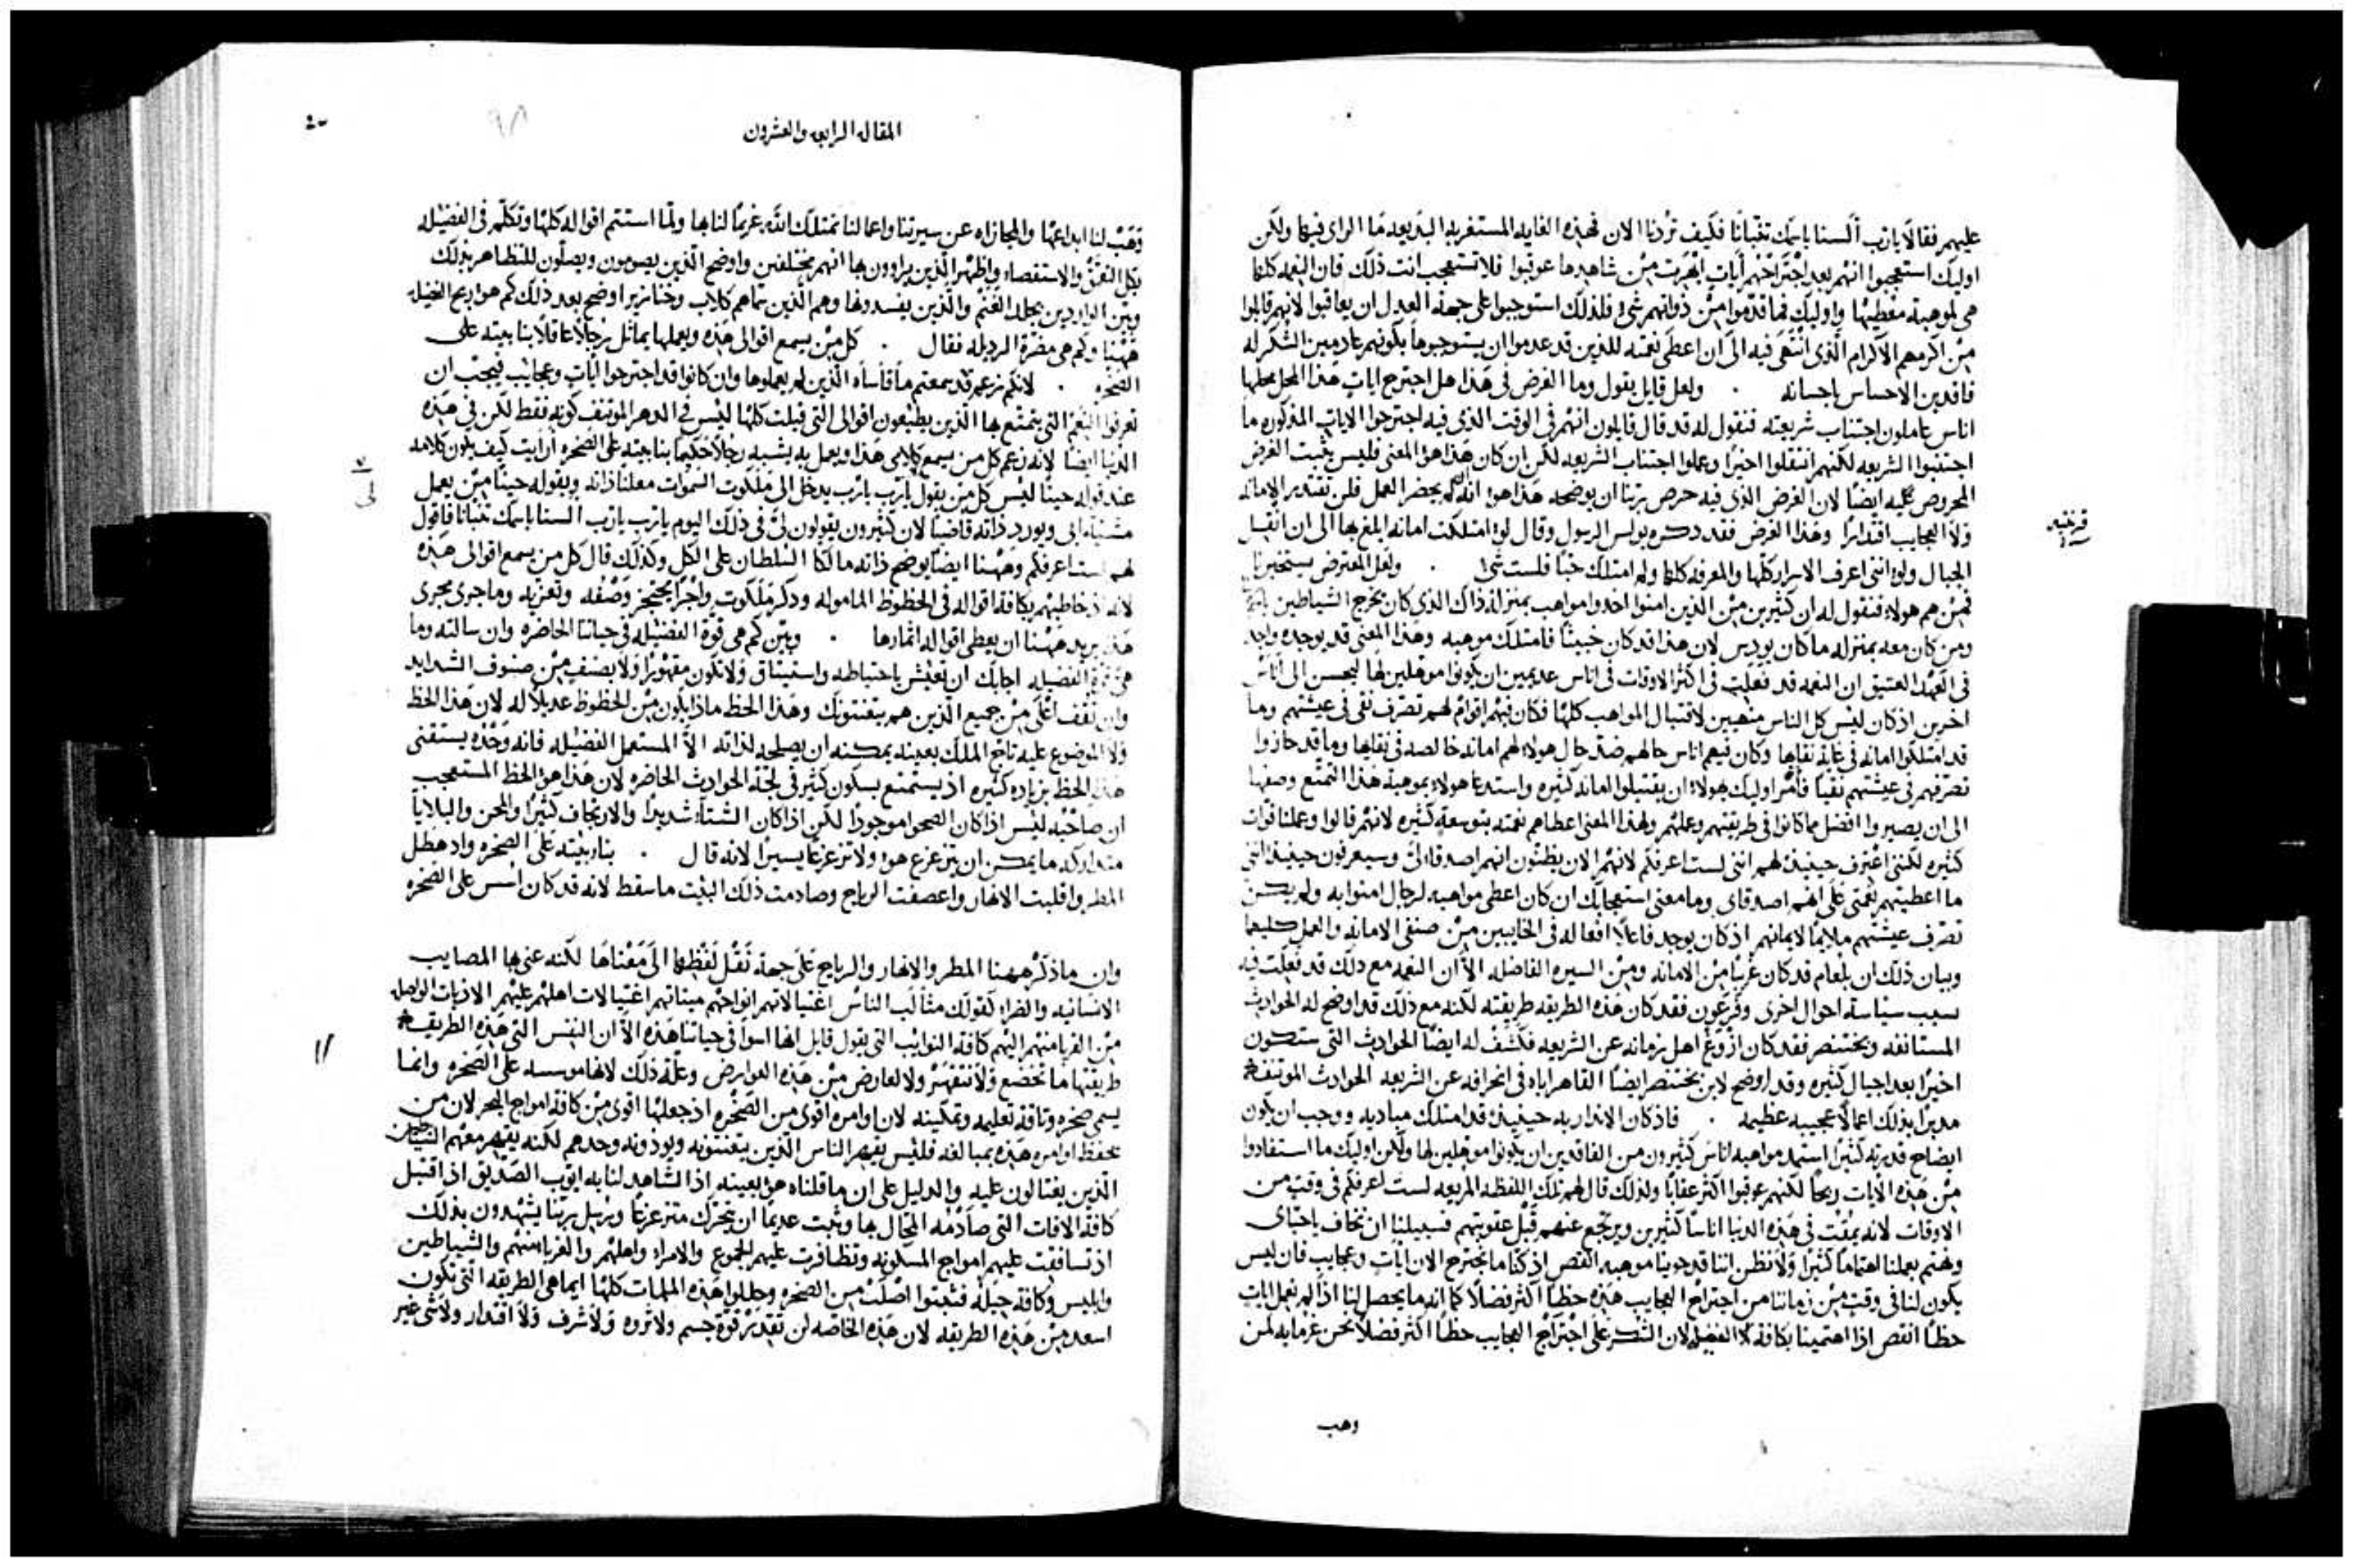 عليهم فقالا يارب ألسنا باسمك تنبانا فكيف تردنا الان فهذه الغايه المستغربه البته بعد ما الراى فيها ولكن
اوليك استعجبوا انهم بعد اجتراحهم أيات ابهرت من شاهدها عوقبوا فلا تستعجب انت ذلك فان النعمه كلها
هى لموهبة معطيها واوليك فما قدموا من ذواتهم شى ولذلك استوجبوا على جهة العدل ان يعاقبوا لانهم قابلوا
من اكرمهم الاكرام الذى انتهى فيه الى ان اعطى نعمته للذين قد عدموا ان يستوجبوها بكونهم عادمين الشكر له
فاقدين الاحساس باحسانه . ولعل قايل يقول وما الغرض فى هذا هل اجترح ايات هذا المحل محلها
اناس عاملون اجتناب شريعته فنقول له قد قال قايلون انهم فى الوقت الذى فيه اجترحوا الايات المذكوره ما
اجتنبوا الشريعه لكنهم انتقلوا اخيرا وعملوا اجتناب الشريعه لكن ان كان هذا هو المعنى فليس يثبت الغرض
المحروص عليه ايضا لان الغرض الذى فيه حرص ربنا ان يوضحه هذا هو انه لم يحضر العمل فلن تقتدر الامانه
ولا العجايب اقتدارا وهذا الغرض فقد ذكره بولس الرسول وقال لو امتلكت امانه ابلغ بها الى ان انقل
الجبال ولو اننى اعرف الاسرار كلها والمعرفه كلها ولم امتلك حبا فلست شى . ولعل المعترض يستخبرنا
فمن هم هولاء فنقول له ان كثيرين من الذين امنوا اخذوا مواهب بمنزلة ذاك الذى كان يخرج الشياطين
ومن كان معه بمنزله ما كان يودس لان هذا قد كان خبيثا فامتلك موهبه وهذا المعنى قد يوجده واجد
فى العهد العتيق ان النعمه قد فعلت فى اكثر الاوقات فى اناس عديمين ان يكونوا موهلين لها ليحسن الى اناس
اخرين اذ كان ليس كل الناس متهيين لاقتبال المواهب كلها فكان فيهم اقوام لهم تصرف نقى فى عيشتهم وما
قد امتلكوا امانه فى غاية نقاها وكان فيهم اناس حالهم ضد حال هولاء لهم امانه خالصه فى نقاها وما قد حازوا
تصرفهم فى عيشتهم نقيا فامر اوليك بهولاء ان يقتبلوا امانه كثيره واستدعا هولاء بموهبة هذا التمتع وصفها
الى ان يصيروا افضل مما كانوا فى طريقتهم وعملهم ولهذا المعنى اعطاهم نعمته بتوسعة كثيره لانهم قالوا وعملنا قوات
كثيره لكننى اعترف حينيذ لهم اننى لست اعرفكم لانهم الان يظنون انهم اصدقاى وسيعرفون حينيذ اننى
ما اعطيتهم نعمتى على انهم اصدقاى وما معنى استعجابك ان كان اعطى مواهبه لرجال امنوا به ولم يكن
تصرف عيشتهم ملايما لايمانهم اذ كان يوجد فاعلا افعاله فى الخايبين من صنفى الامانه والعمل كليهما
وبيان ذلك ان بلعام قد كان غريبا من الامانه ومن السيره الفاضله الا ان النعمه مع ذلك قد فعلت فيه
بسبب سياسة احوال اخرى وفرعون فقد كان هذه الطريقه طريقته لكنه مع ذلك قد اوضح له الحوادث
المستانفه وبختنصر فقد كان ازوغ اهل زمانه عن الشريعه فكشف له ايضا الحوادث التى ستكون
اخيرا بعد اجيال كثيره وقد اوضح لابن بختنصر ايضا القاهر اباه فى انحرافه عن الشريعه الحوادث الموتنفه
مدبرا بذلك اعمالا عجيبه عظيمه . فاذ كان الانذار به حينيذ قد امتلك مباديه ووجب ان يكون
ايضاح قدرته كثيرا استمد مواهبه اناس كثيرون من الفاقدين ان يكونوا موهلين لها ولكن اوليك ما استفادوا
من هذه الايات ربحا لكنهم عوقبوا اكثر عقابا ولذلك قال لهم تلك اللفظه المريعه لست اعرفكم فى وقت من
الاوقات لانه يمقت فى هذه الدنيا اناسا كثيرين ويرتجع عنهم قبل عقوبتهم فسبيلنا ان نخاف ياحباى
ونهتم بعملنا اهتماما كثيرا ولا نظن اننا قد حوينا موهبه انقص اذ كنا ما نجترح الان ايات وعجايب فان ليس
يكون لنا فى وقت من زماننا من اجتراح العجايب هذه حظا اكثر فضلا كما انه ما يحصل لنا اذا لم نعمل ايات
حظا انقص اذا اهتمينا بكافة الفضيله لان الشكر على اجتراح العجايب حظا اكثر فضلا نحن غرما به لمن
وهب
قرنتيه
المقاله الرابعه والعشرون
٩٨
وهب لنا ابداعها والمجازاه عن سيرتنا واعمالنا نمتلك الله غريما لنا بها ولما استتم اقواله كلها وتكلم فى الفضيله
بكل التفنن والاستقصاء واظهر الذين يراوون بها انهم مختلفين واوضح الذين يصومون ويصلون للتظاهر بذلك
وبين الواردين بجلد الغنم والذين يفسدونها وهم الذين سماهم كلاب وخنازير اوضح بعد ذلك كم هو اربح الفضيله
ههنا وكم هى مضرة الرذيله فقال . كل من يسمع اقوالى هذه ويعملها يماثل رجلا عاقلا بنا بيته على
الصخره . لانكم زعم قد سمعتم ما قاساه الذين لم يعملوها وان كانوا قد اجترحوا ايات وعجايب فيجب ان
تعرفوا النعم التى يتمتع بها الذين يطيعون اقوالى التى قيلت كلها ليس فى الدهر الموتنف كونه فقط لكن فى هذه
الدنيا ايضا لانه زعم كل من يسمع كلامى هذا ويعمل به يشبه رجلا حكيما بنا بيته على الصخره أرايت كيف يلون كلامه
عند قوله حينا ليس كل من يقول يارب يارب يدخل الى ملكوت السموات معلنا ذاته وبقوله حينا من يعمل
مشية ابى ويورد ذاته قاضيا لان كثيرون يقولون لى فى ذلك اليوم يارب يارب السنا باسمك تنبانا فاقول
لهم لست اعرفكم وههنا ايضا يوضح ذاته مالكا السلطان على الكل وكذلك قال كل من يسمع اقوالى هذه
لانه اذ خاطبهم بكافة اقواله فى الحظوظ الماموله وذكر ملكوت واجرا يعتجز وصفه وتعزيه وما جرى مجرى
هذه يريد ههنا ان يعطى اقواله اثمارها . وبين كم هى قوة الفضيله فى حياتنا الحاضره وان سالته وما
هى قوة الفضيله اجابك ان تعيش باحتياطه واستيثاق ولا تكون مقهورا ولا بصنف من صنوف الشدايد
وان تقف اعلى من جميع الذين هم يتعنتونك وهذا الحظ ماذا يكون من الحظوظ عديلا له لان هذا الحظ
ولا الموضوع عليه تاج الملك بعينه يمكنه ان يصلحه لذاته الا المستعمل الفضيله فانه وحده يستقنى
هذا الحظ بزياده كثيره اذ يستمتع بسكون كثير فى لجة الحوادث الحاضره لان هذا هو الحظ المستعجب
ان صاحبه ليس اذا كان الصحو موجودا لكن اذا كان الشتاء شديدا والارتجاف كثيرا والمحن والبلايا
متداركه ما يمكن ان يتزعزع هو ولا تزعزعا يسيرا لانه قال . بنا بيته على الصخره واذ هطل
المطر واقلبت الانهار واعصفت الرياح وصادمت ذلك البيت ما سقط لانه قد كان اسس على الصخره
وان ما ذكر ههنا المطر والانهار والرياح على جهة نقل لفظها الى معناها لكنه عنى بها المصايب
الانسانيه والضراء كقولك مثالب الناس اغتيالاتهم انواحهم ميتاتهم اغتيالات اهلهم عليهم الاذيات الواصله
من الغربا منهم اليهم كافة النوايب التى يقول قايل انها اسوأ فى حياتنا هذه الا ان النفس التى هذه الطريقه
طريقتها ما تخضع ولا تنقهر ولا لعارض من هذه العوارض وعلة ذلك لانها موسسه على الصخره وانما
يسمى صخره وثاقة تعليمه وتمكينه لان اوامره اقوى من الصخره اذ جعلها اقوى من كافة امواج البحر لان من
يحفظ اوامره هذه بمبالغه فليس يقهر الناس الذين يتعنتونه ويوذونه وحدهم لكنه يقهر معهم الشياطين
الذين يغتالون عليه والدليل على ان ما قلناه هو بعينه اذا الشاهد لنا به ايوب الصديق اذ اقتبل
كافة الافات التى صادمه المحال بها وثبت عديما ان يتحرك متزعزعا ورسل ربنا يشهدون بذلك
اذ تسافقت عليهم امواج المسكونه وتظافرت عليهم الجموع والامراء واهلهم والغربا منهم والشياطين
وابليس وكافة حيله فثبتوا اصلب من الصخره وحللوا هذه الملمات كلها ايما هى الطريقه التى تكون
اسعد من هذه الطريقه لان هذه الخاصه لن تقتدر قوة جسم ولا ثروه ولا شرف ولا اقتدار ولا شى غير